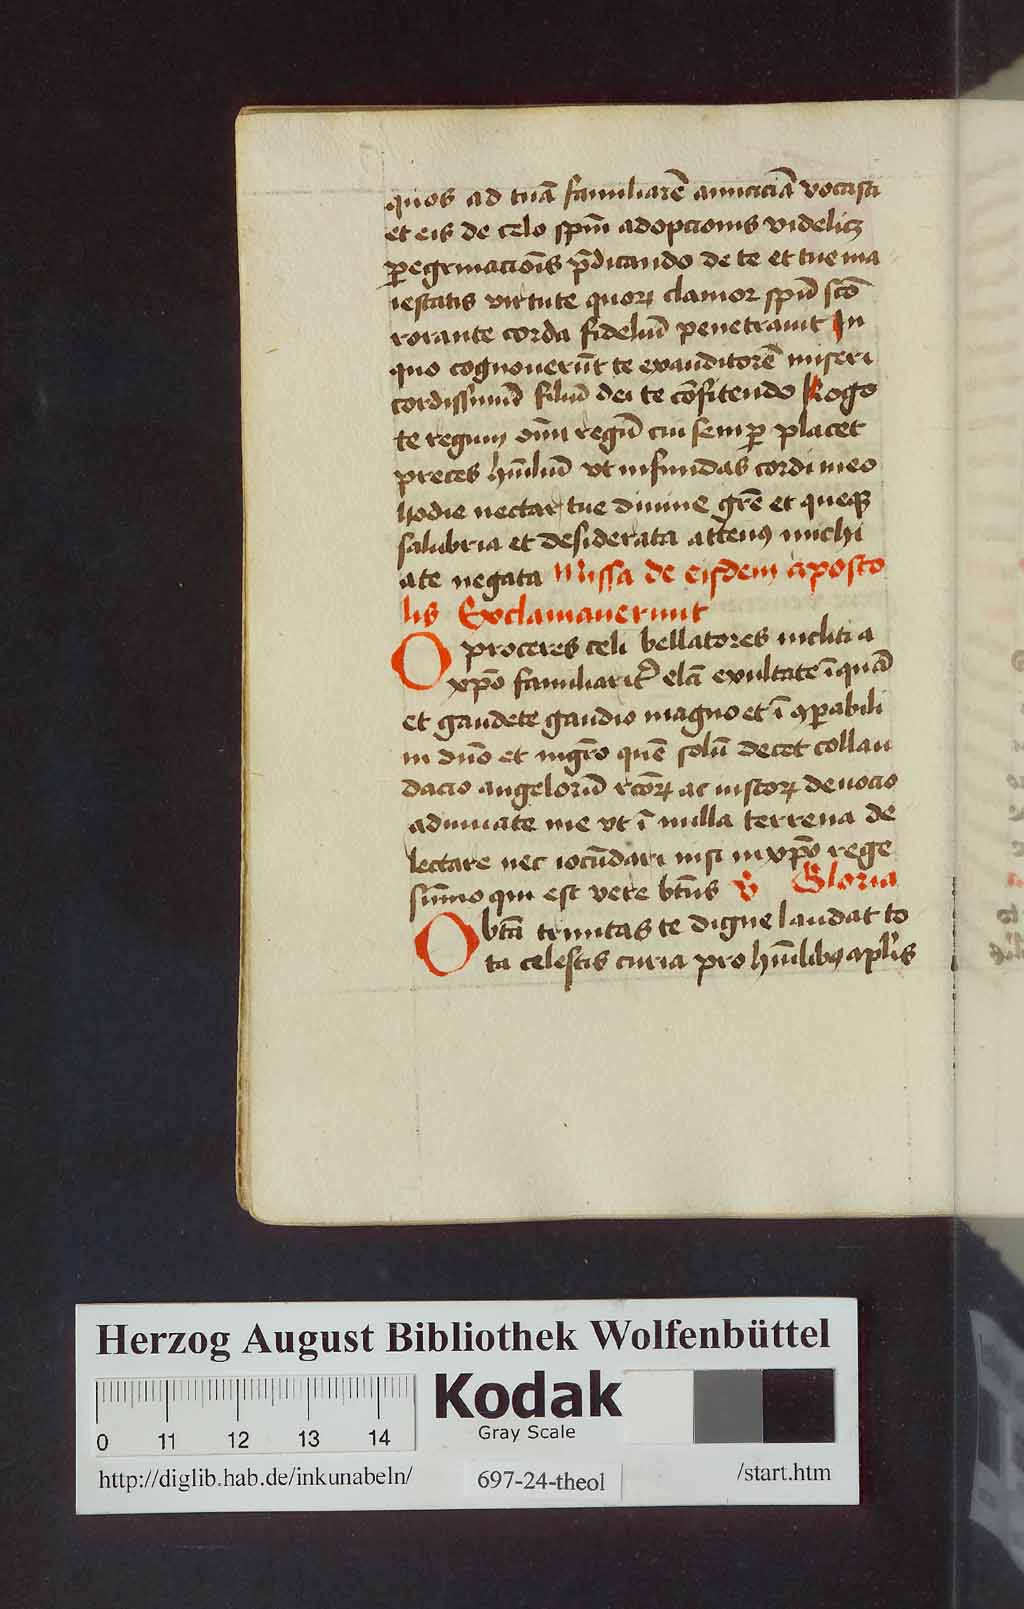 quos ad tuā familiarē amiciciā vocasti
et eis de celo spm̄ adopcionis videlicꝫ
ꝑegrinaciōis p̄dicando de te et tue ma
iestatis virtute quoꝝ clamor spū scō
rorante corda fideliū penetrauit In
quo cognouerūt te exauditorē miseri
cordissimū filiū dei te cōfitendo Rogo
te regum dn̄i regū cui semꝑ placet
preces hūiliū vt infundas cordi meo
hodie nectar tue diuine grē et queqꝫ
salubria et desiderata attenꝯ michi
a te negata Missa de eisdem aposto
lis Exclamauerunt
O proceres celi bellatores incliti a
xp̄o familiarit͛ elc̄ā exultate īquā
et gaudete gaudio magno et ī ꝯꝑabili
in dn̄o et mgr̄o quē solū decet collau
dacio angeloruū rcōꝝ ac iustoꝝ deuocio
adiuuate me vt ī nulla terrena de
lectare nec iocūdari nisi in xp̄o rege
sūmo qui est vere btūs V̄ Gloria
O btā trinitas te digne laudat to
ta celestis curia pro hūilibꝯ aplīs
Herzog August Bibliothek Wolfenbüttel
Kodak
Gray Scale
0 11 12 13 14
http://diglib.hab.de/inkunabeln/
697-24-theol
/start.htm